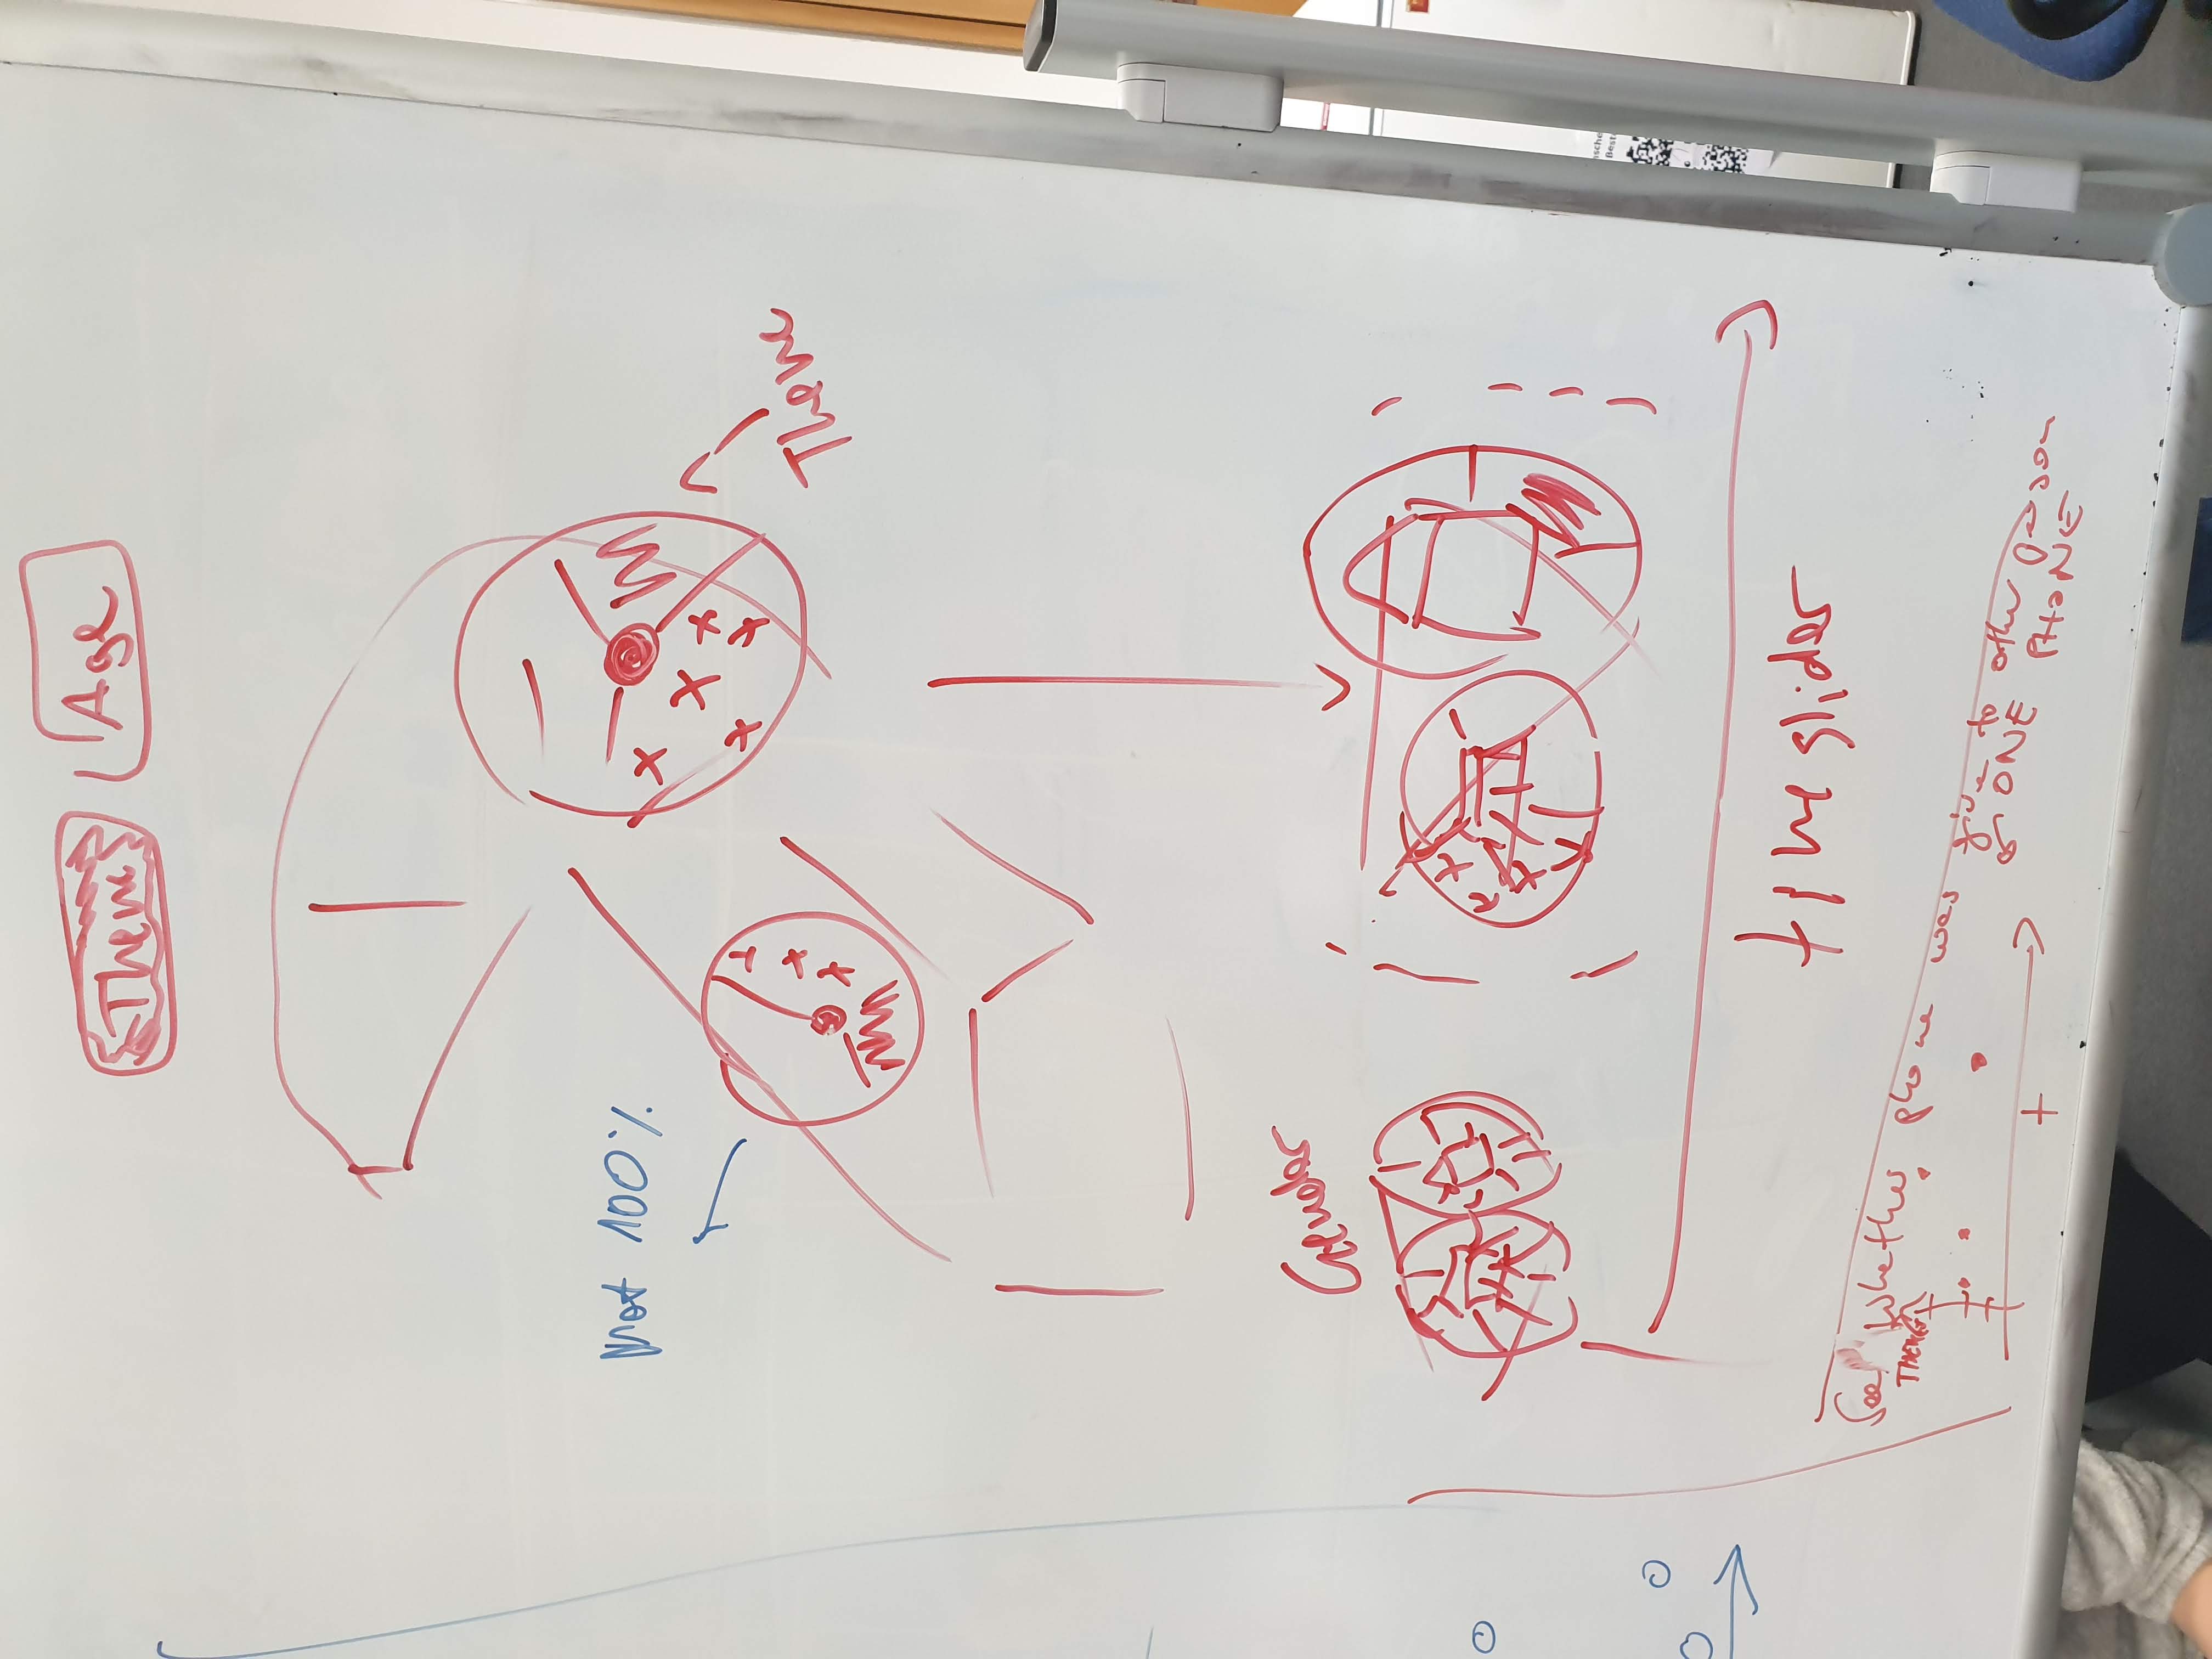 Theme
Age
Not 100%
Theme
Gender
time slider
See whether phone was given to other person
THEMES
or ONE PHONE
t